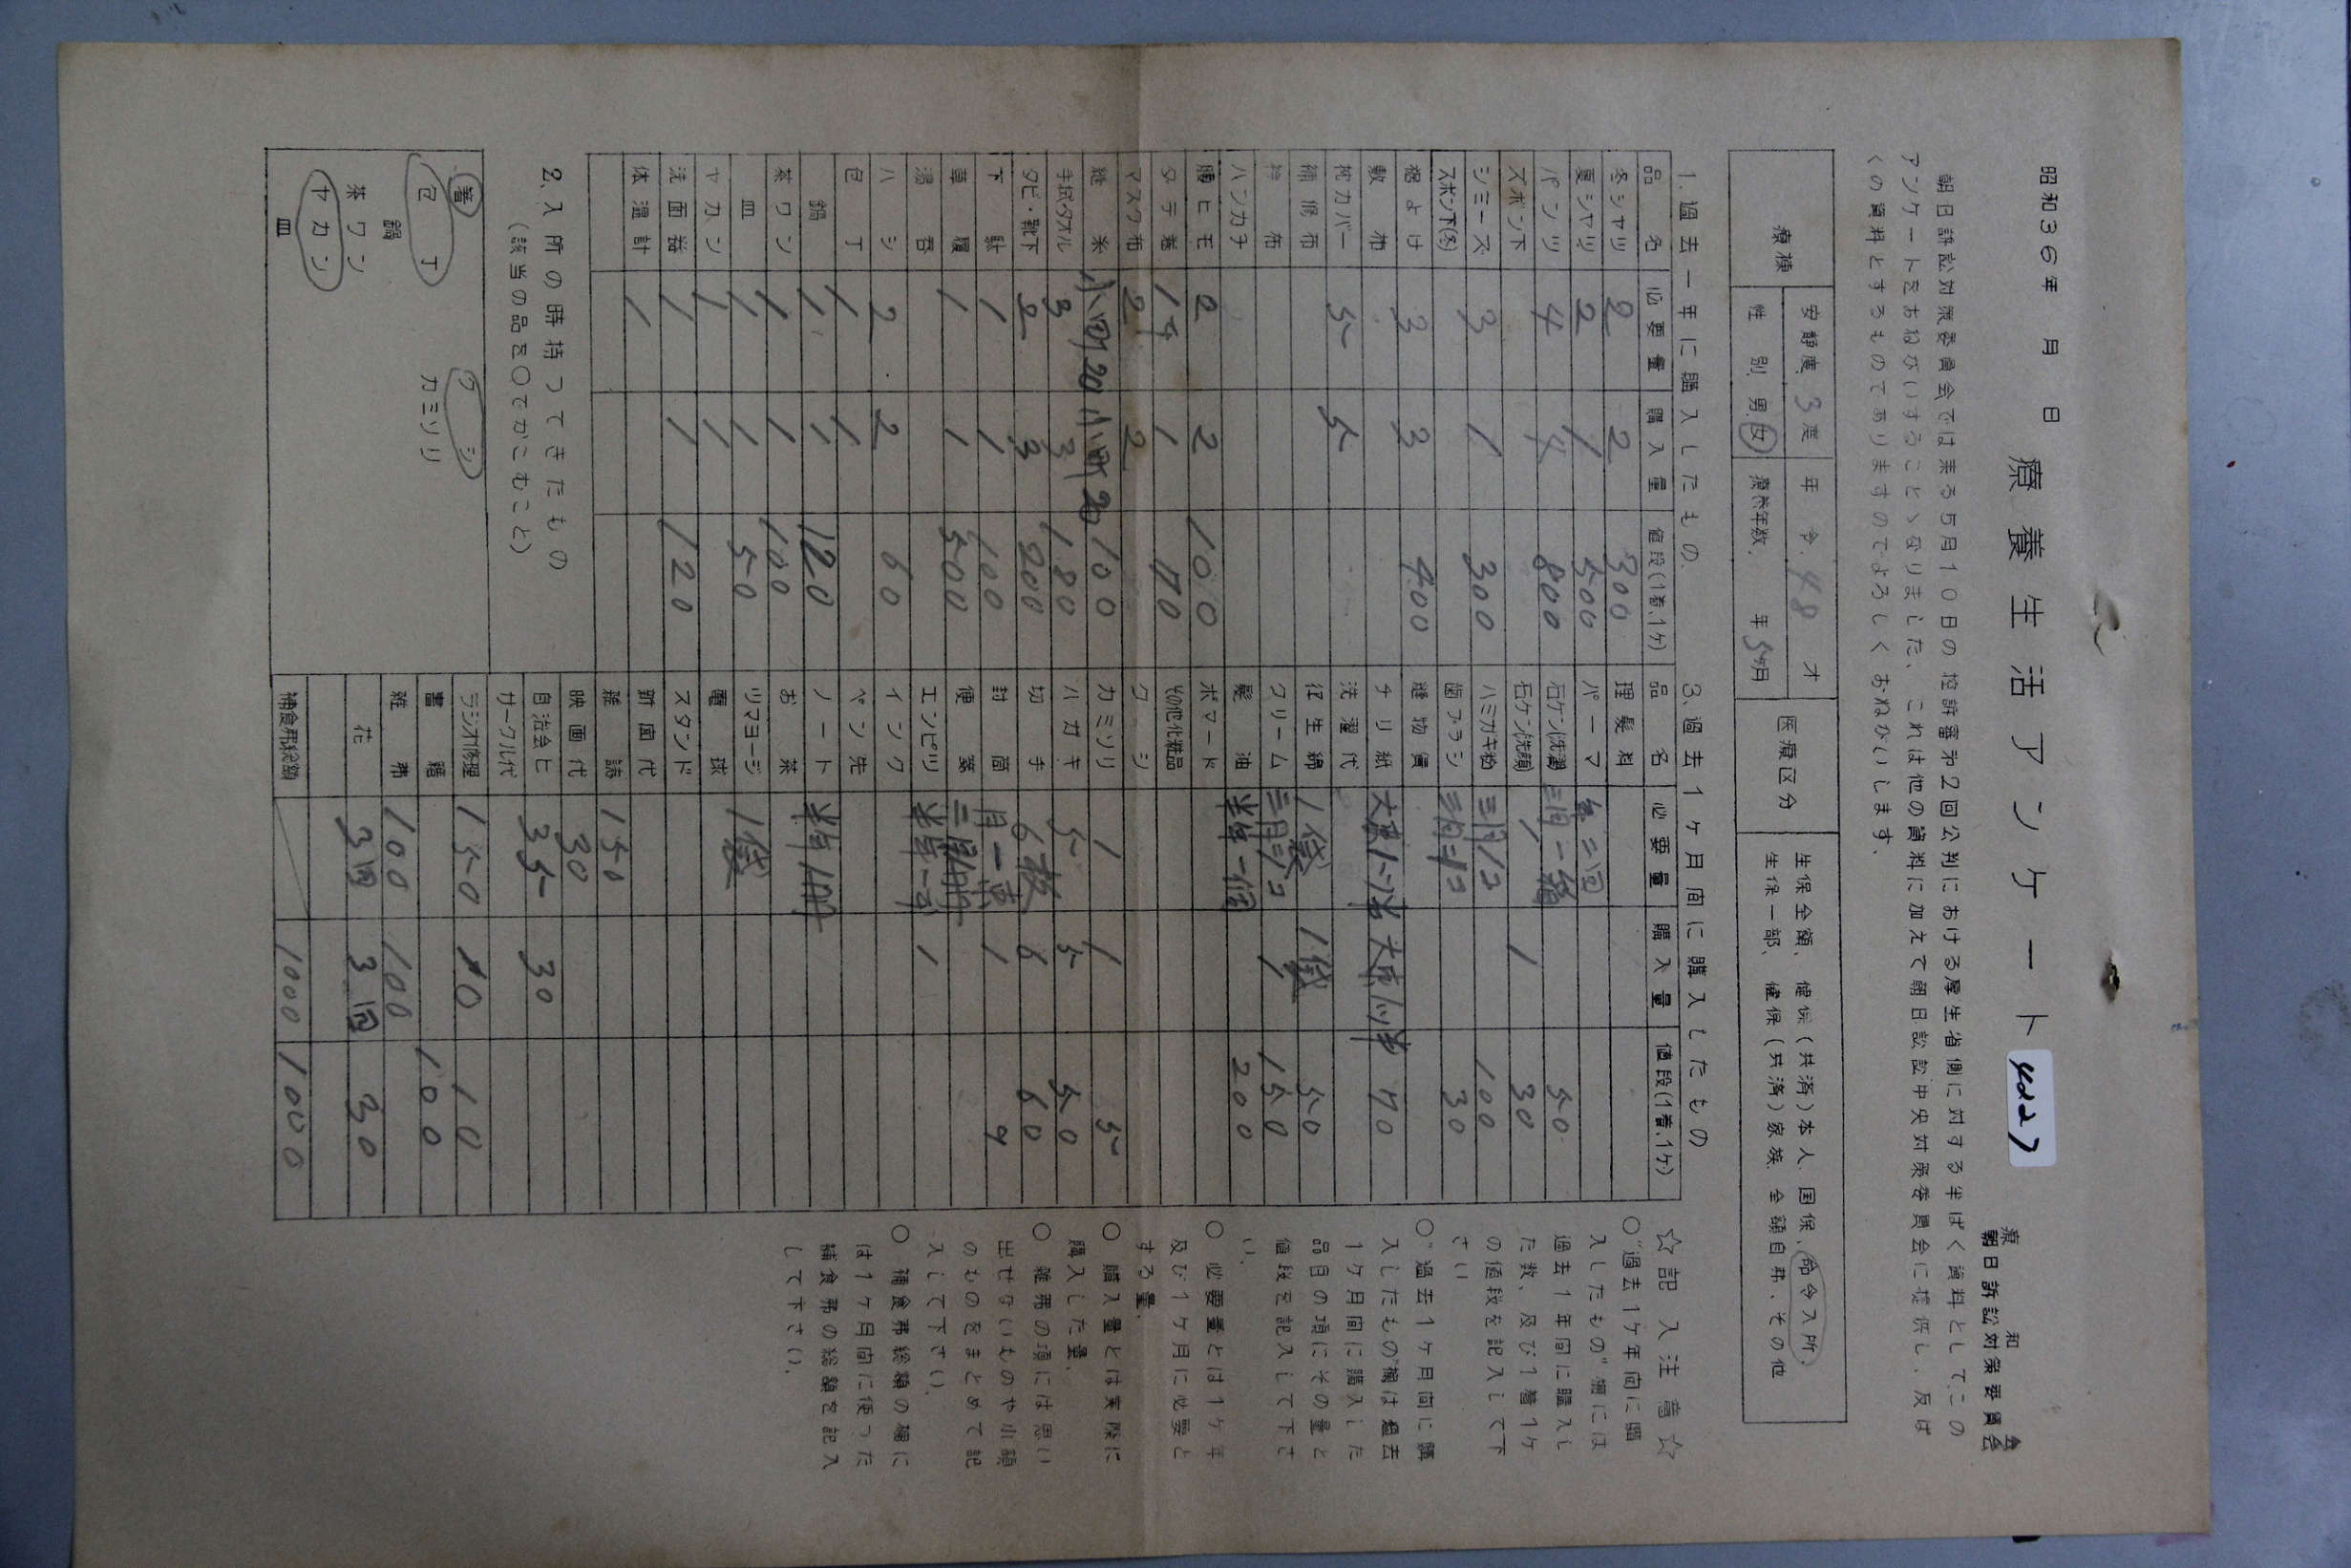 昭和36年　月　日
療養生活アンケート
4427
療和会
朝日訴訟対策委員会
朝日訴訟対策委員会では来る5月10日の控訴審第2回公判における厚生省側に対する半ばく資料としてこの
アンケートをおねがいすることゝなりました、これは他の資料に加えて朝日訟訴中央対策委員会に提供し、反ば
くの資料とするものでありますのでよろしくおねがいします.
療棟
安静度 3度　年令.48才
性別 男.女　療養年数.　年5ヶ月
医療区分
生保全額、健保(共済)本人 国保、命令入所.
生保一部、健保(共済)家族 全額自弗、その他
1.過去一年に購入したもの
品名　必要量　購入量　値段(1着、1ケ)
冬シャツ 2 2 300
夏シャツ 2 1 500
パンツ 4 4 800
ズボン下
シミーズ 3 1 300
ズボン下(冬)
裾よけ 3 3 400
敷布
枕カバー 5 5
補修布
衿布
ハンカチ
腰ヒモ 2 2 100
タテ巻 1 70
マスク布 2 2
縫糸 20 20 100
手拭タオル 3 3 180
タビ・靴下 2 3 200
下駄 1 1 100
草履 1 1 500
湯呑
ハシ 2 2 60
包丁 1 1
鍋 1 1 120
茶ワン 1 1 100
皿 1 1 50
ヤカン 1 1
洗面器 1 1 120
体温計 1
2、入所の時持ってきたもの
(該当の品を○でかこむこと)
箸　クシ
包丁　カミソリ
鍋
茶ワン
ヤカン
皿
3、過去1ヶ月間に購入したもの
品名　必要量　購入量　値段(1着、1ケ)
理髪料
パーマ 年二回
石ケン(洗濯) 三月一箱 50
石ケン(洗顔) 1 1 30
ハミガキ粉 三月1コ 100
歯ブラシ 三月1コ 30
縫物賃
チリ紙 70
洗濯代
衛生綿 1袋 1袋 50
クリーム 三月1コ 1 150
髪油 半年一個 200
ポマード
その他化粧品
クシ
カミソリ 1 1 5
ハガキ 5 5 50
切手 6枚 6 60
封筒 月一束 1
便箋 二月1冊
エンピツ 1
インク
ペン先
ノート 半年1冊
お茶
ツマヨージ 1袋
電球
スタンド
新聞代
雑誌 150
映画代 30
自治会ヒ 35 30
サークル代
ラジオ修理 150 10 10
書籍 100
雑弗 100 100
花 3回 3回 30
補食弗総額 1000 1000
☆記入注意☆
○“過去1ケ年間に購
入したもの”欄には
過去1年間に購入し
た数、及び1着1ケ
の値段を記入して下
さい
○“過去1ヶ月間に購
入したもの”欄は過去
1ヶ月間に購入した
品目の項にその量と
値段を記入して下さ
い.
○必要量とは1ケ年
及び1ケ月に必要と
する量.
○購入量とは実際に
購入した量.
○雑弗の項には思い
出せないものや小額
のものをまとめて記
入して下さい.
○補食弗総額の欄に
は1ヶ月間に使った
補食弗の総額を記入
して下さい.